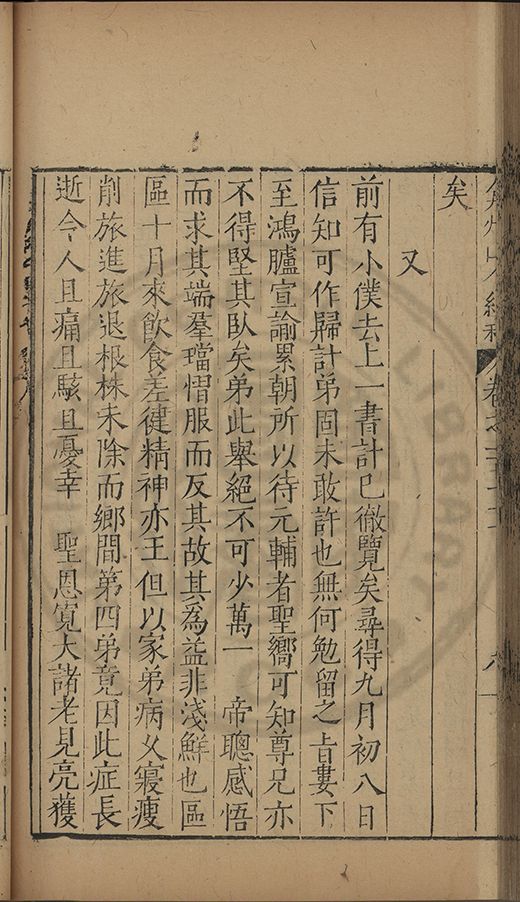 矣
又
前有小僕去上一書計已徹覽矣尋得九月初八日
信知可作歸計弟固未敢許也無何勉留之旨婁下
至鴻臚宣諭累朝所以待元輔者聖嚮可知尊兄亦
不得堅其臥矣弟此舉絕不可少萬一　帝聰感悟
而求其端羣璫慴服而反其故其為益非淺鮮也區
區十月來飲食差健精神亦王但以家弟病火寢瘦
削旅進旅退根株未除而鄉間第四弟竟因此症長
逝令人且痛且駭且憂幸　聖恩寬大諸老見亮獲